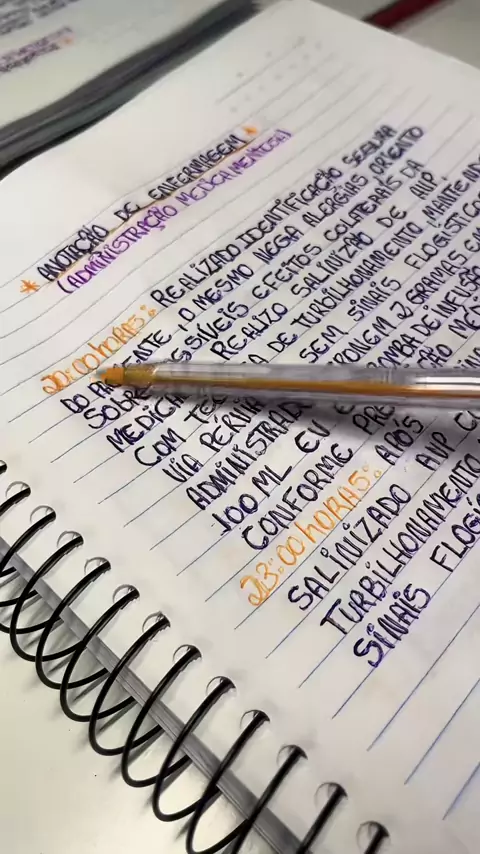 * ANOTAÇÃO DE ENFERMAGEM *
(ADMINISTRAÇÃO MEDICAMENTOSA)
20:00 HORAS: REALIZADO IDENTIFICAÇÃO SEGURA
DO PACIENTE, O MESMO NEGA ALERGIAS, ORIENTO
SOBRE POSSÍVEIS EFEITOS COLATERAIS DA
MEDICAÇÃO REALIZO SALINIZAÇÃO DE AVP
COM TÉCNICA DE TURBILHONAMENTO MANTENDO
VIA PÉRVIA SEM SINAIS FLOGÍSTICOS
ADMINISTRADO 2 GRAMAS EM
100 ML EV BOMBA DE INFUSÃO
CONFORME
23:00 HORAS: APÓS
SALINIZADO AVP
TURBILHONAMENTO
SINAIS